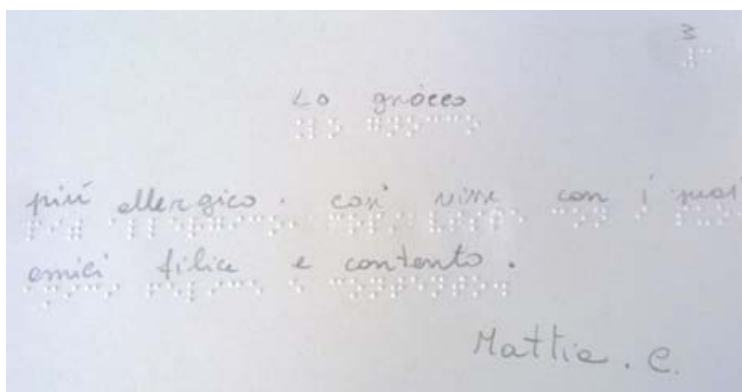 3
Lo gnocco
più allergico. così visse con i suoi
amici felice e contento.
Mattia. C.